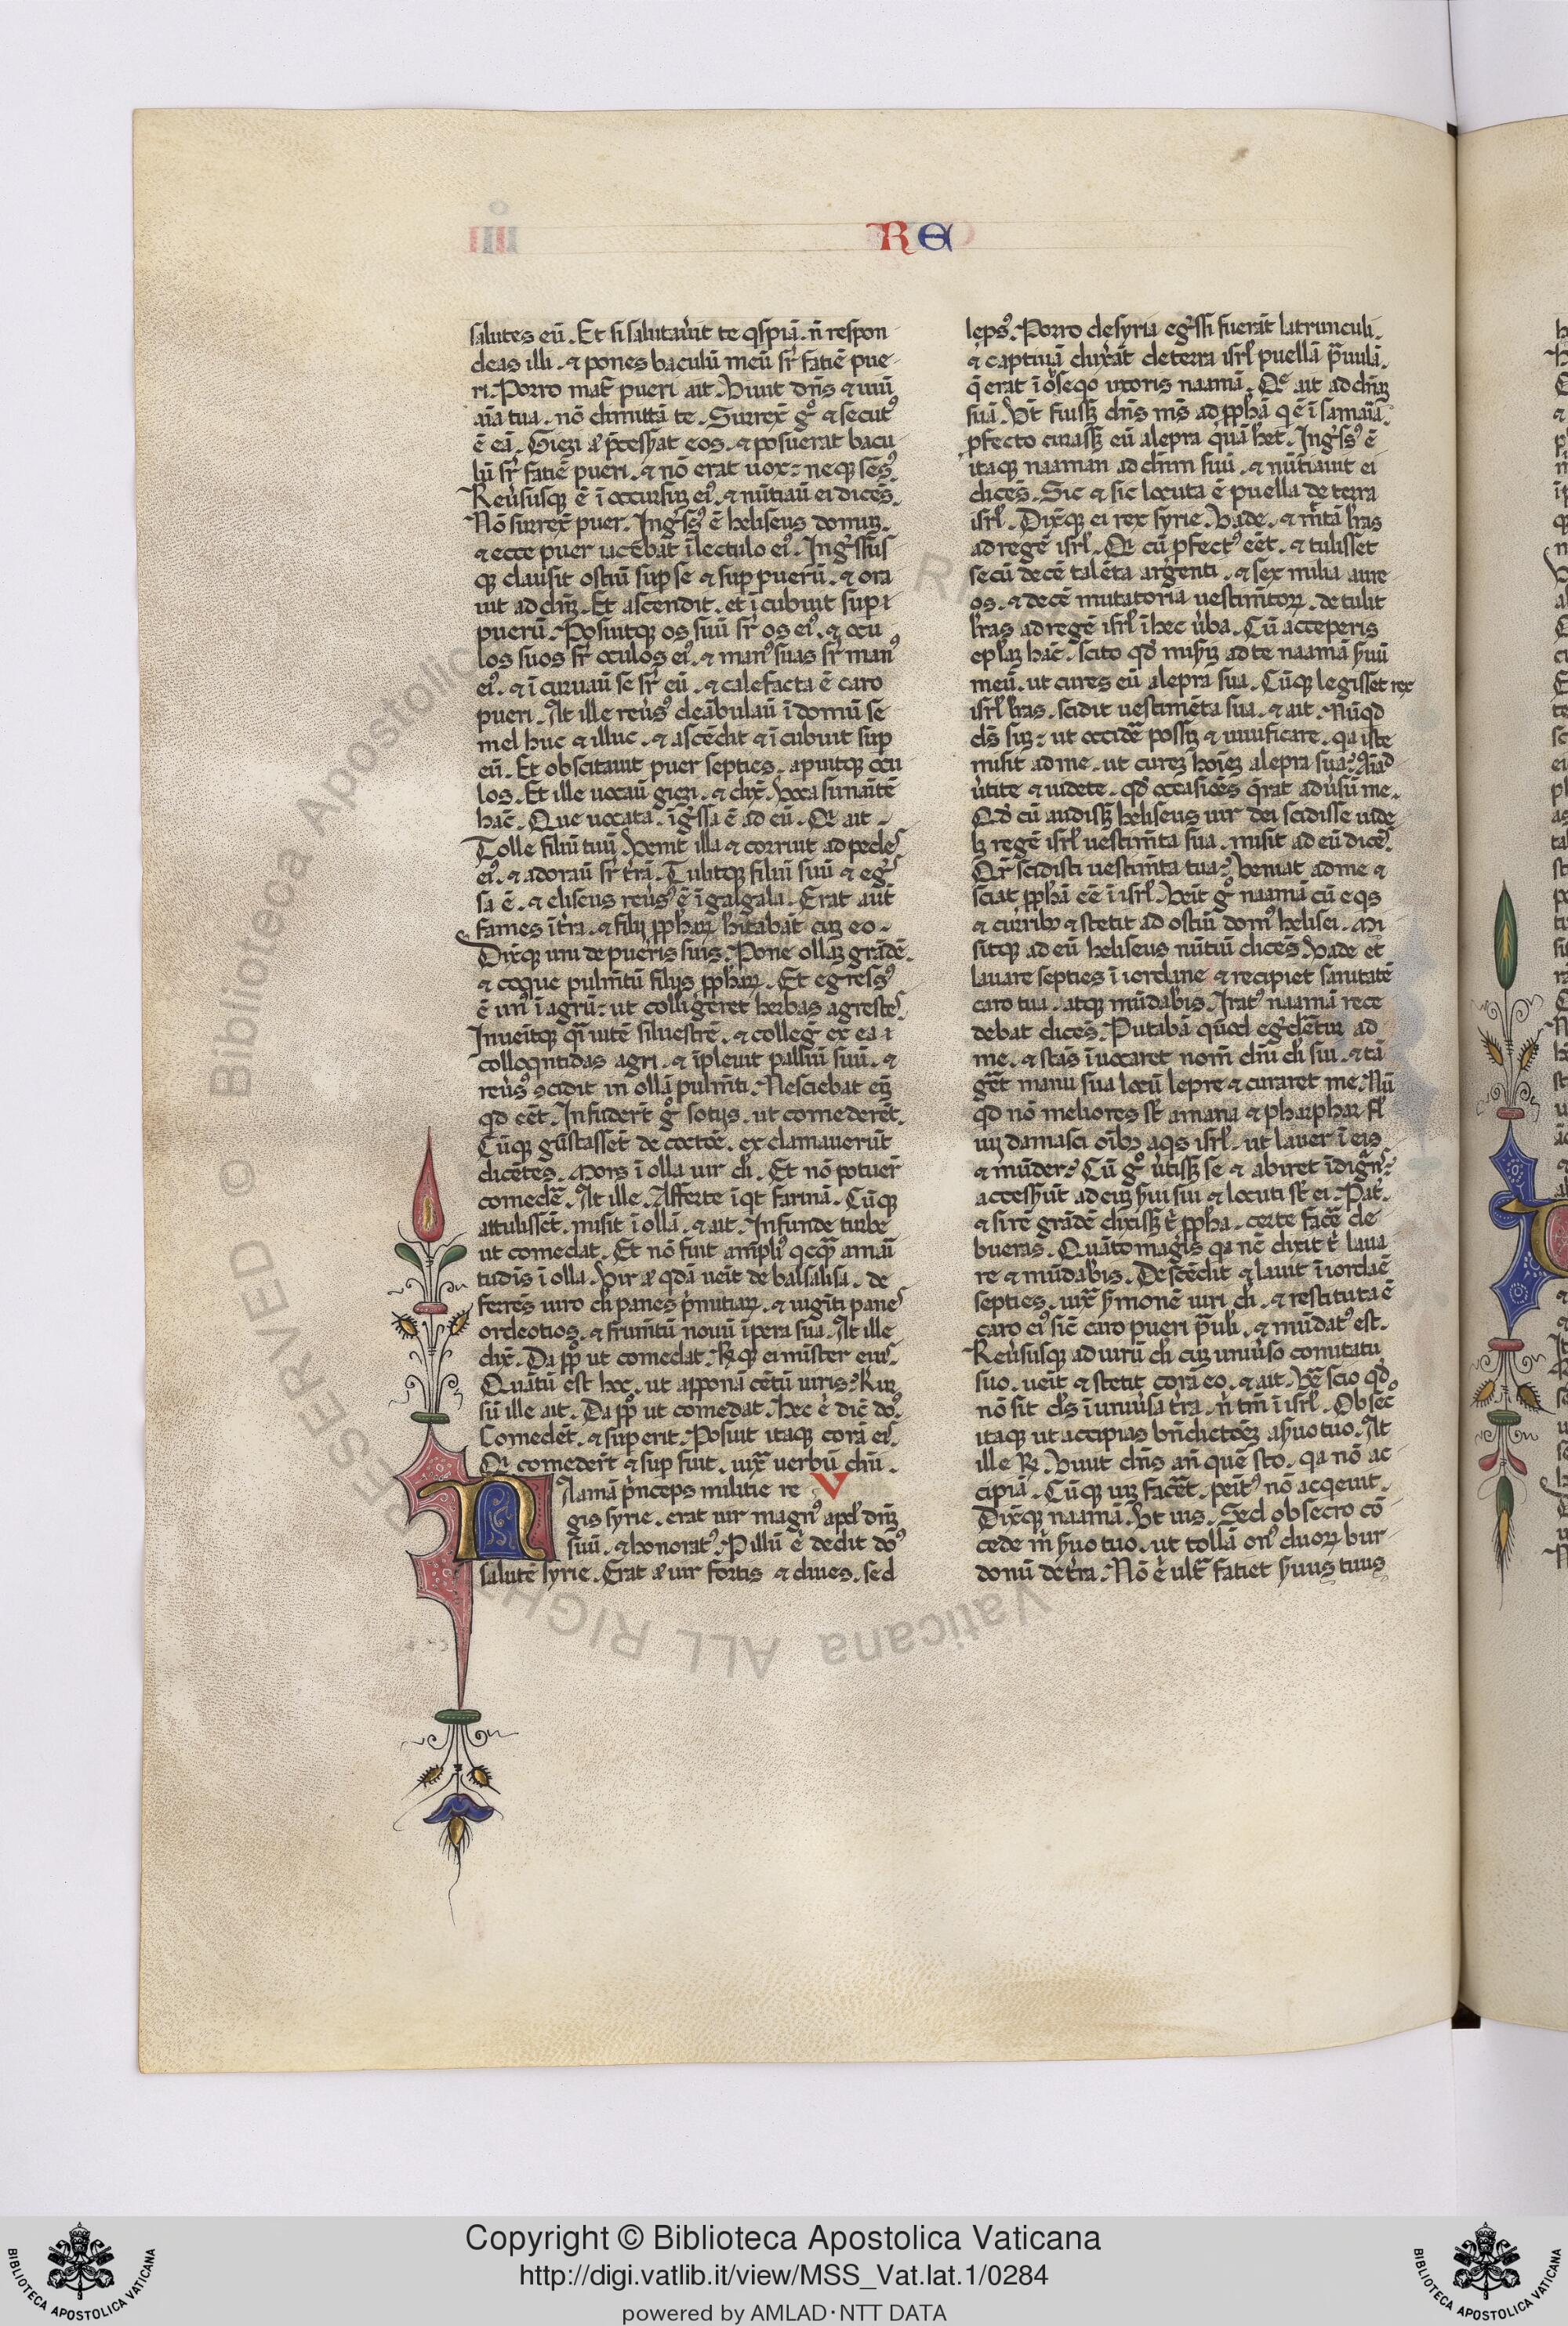 RE
salutes eū. Et si salutav̄it te q̄spiā. n̄ respon
deas illi. ⁊ pones baculū meū sr̄ fatiē pue
ri. Porro mat̄ pueri ait. Vivit dn̄s ⁊ vivit
aīa tua. nō dimittā te. Surrex̄ gͦ ⁊ secutꝰ
ē eā. Giezi aͧ p̄cesserat eos. ⁊ posuerat bacu
lū sr̄ fatiē pueri. ⁊ nō erat uox: neqꝫ sēsꝰ
Reūsusqꝫ ē ī occursuꝫ eiꝰ. ⁊ nūtiauͭ ei dicēs.
Nō surrex̄ puer. Ingr̄sꝰ ē heliseus domuꝫ.
⁊ ecce puer iacēbat ī lectulo eiꝰ. Ingr̄ssus
qꝫ clausit ostiū sup se ⁊ sup puerū. ⁊ ora
uit ad dn̄ꝫ. Et ascendit. et īcubuit sup
puerū. Posuitqꝫ os suū sr̄ os eiꝰ. ⁊ ocu
los suos sr̄ oculos eiꝰ. ⁊ manꝰ suas sr̄ manꝰ
eiꝰ. ⁊ īcuruauͭ se sr̄ eū. ⁊ calefacta ē caro
pueri. At ille reūsꝰ deābulauͭ ī domū se
mel huc ⁊ illuc. ⁊ ascēdit ⁊ īcubuit sup
eū. Et obscitauit puer septies. apuitqꝫ ocu
los. Et ille uocauͭ giezi. ⁊ dix̄. Voca sunaītē
hāc. Que uocata. īgr̄ssa ē ad eū. Qͥ ait
Tolle filiū tuū. Venit illa ⁊ corruit ad pedes
eiꝰ. ⁊ adorauͭ sr̄ t̄rā. Tulitqꝫ filiū suū ⁊ egr̄s
sa ē. ⁊ eliseus reūsꝰ ē ī galgala. Erat aut̄
fames ī t̄ra. ⁊ filij ꝓphaꝝ hītabāt cuꝫ eo.
Dix̄qꝫ uni de pueris suis. Pone ollaꝫ grādē.
⁊ coque pulm̄tū filijs ꝓphaꝝ. Et egressꝰ
ē unꝰ ī agrū: ut colligeret herbas agrestes.
Inueītqꝫ q̄i uitē siluestrē. ⁊ collegͭ ex ea
colloqntidas agri. ⁊ īpleuit palliū suū. ⁊
reūsꝰ scidit in ollā pulm̄ti. Nesciebat eꝫ
qd̄ eēt. Infuder̄t gͦ sotijs. ut comederēt.
Cūqꝫ gustassēt de coctōe. exclamauerūt
dicētes. Mors ī olla uir di. Et nō potuer̄
comed̄e. At ille. Afferte īqt farinā. Cūqꝫ
attulissēt. misit ī ollā. ⁊ ait. Infunde turbe
ut comedat. Et nō fuit ampliꝰ qcqͣ amari
tudīs ī olla. Vir aͧ qdā ueīt de balsalisa. de
ferēs uiro di panes p̄mitiaꝝ. ⁊ uigīti panes
ordeotios. ⁊ frum̄tū nouū ī pera sua. At ille
dix̄. Da ppͦ ut comedat. Rͥqꝫ ei mīster eius.
Quātū est hoc. ut apponā cētū uiris? Rur
sū ille ait. Da ppͦ ut comedat. hec ē dic̄ doꝰ.
Comedēt. ⁊ superit. Posuit itaqꝫ corā eis.
Qͥ comeder̄t ⁊ sup fuit. iux̄ uerbū dn̄i.
V
Naamā p̄nceps militie re
gis syrie. erat uir magnꝰ apd̄ dn̄ꝫ
suū. ⁊ honoratꝰ. P illū ē dedit doꝰ
salutē syrie. Erat aͧ uir fortis ⁊ diues. sed
lepsꝰ. Porro de syria egr̄ssi fuerāt latrunculi.
⁊ captiuā dux̄āt de terra isrl̄ puellā p̄uulā.
q̄ erat ī obseqo uxoris naamā. Qͤ ait ad dn̄aꝫ
suā. Vt̄ fuissꝫ dn̄s ms̄ ad ꝓphā q ē ī samariā.
pfecto curassꝫ eū a lepra quā het. Ingr̄sꝰ ē
itaqꝫ naaman ad dn̄m suū. ⁊ nūtiauit ei
dicēs. Sic ⁊ sic locuta ē puella de terra
isrl̄. Dix̄qꝫ ei rex syrie. Vade. ⁊ mitā l̄ras
ad regē isrl̄. Qͥ cū pfectꝰ eēt. ⁊ tulisset
secū decē talēta argenti. ⁊ sex milia aure
os. ⁊ decē mutatoria uestim̄toꝝ. detulit
l̄ras ad regē isrl̄ ī hec ūba. Cū acceperis
epl̄aꝫ hāc. scito qd̄ miserī ad te naamā seruū
meū. ut cures eū a lepra sua. Cūqꝫ legisset rex
isrl̄ l̄ras. scidit uestimēta sua. ⁊ ait. Nūqd
ds̄ suꝫ: ut occid̄e possꝫ ⁊ uiuificare. qa iste
misit ad me. ut cureꝫ hoīeꝫ a lepra sua? Aīad
ūtite ⁊ uidete. qd̄ occasiōes q̄rat adūsū me.
Qd̄ cū audissꝫ heliseus uir dei scidisse uide
lꝫ regē isrl̄ uestim̄ta sua. misit ad eū dicēs.
Qr̄ scidisti uestim̄ta tua? Veniat ad me ⁊
sciat ꝓphā eē ī isrl̄. Veīt gͦ naamā cū eqs
⁊ curribꝫ ⁊ stetit ad ostiū domꝰ helisei. Mi
sitqꝫ ad eū heliseus nūtiū dicēs. Vade et
lauare septies ī iordane ⁊ recipiet sanitatē
caro tua. atqꝫ mūdabis. Iratꝰ naamā rece
debat dicēs. Putabā quod egrederetur ad
me. ⁊ stās īuocaret nom̄ dn̄i di sui. ⁊ tā
gēt manu sua locū lepre ⁊ curaret me. Nū
qd nō meliores st̄ amana ⁊ pharphar fl
uij damasci oībꝫ aqs isrl̄. ut lauer ī eis
⁊ mūder? Cū gͦ ūtissꝫ se ⁊ abiret īdignās.
accesserūt ad eūꝫ serui sui ⁊ locuti st̄ ei. Pat̄.
⁊ si rē grādē dixissꝫ t̄ ꝓpha. certe fac̄e de
bueras. Quāto magis qa nc̄ dixit t̄ laua
re ⁊ mūdabis. Descēdit ⁊ lauit ī iordaē
septies. iux̄ sermonē uiri di. ⁊ restituta ē
caro eiꝰ sic̄ caro pueri p̄uuli. ⁊ mūdatꝰ est.
Reūsusqꝫ ad uirū di cuꝫ uniūso comitatu
suo. ueīt ⁊ stetit corā eo. ⁊ ait. Ve scio qd̄
nō sit ds̄ ī uniūsa t̄ra. n̄ tm̄ ī isrl̄. Obsec̄
itaqꝫ ut accipias bn̄dictōeꝫ a seruo tuo. At
ille Rͥ. Viuit dn̄s an̄ quē sto. qa nō ac
cipiā. Cūqꝫ uiꝫ facēt. peītꝰ nō acqeuit.
Dix̄qꝫ naamā. Vt uis. Sed obsecro cō
cede m̄ seruo tuo. ut tollā onꝰ duoꝝ bur
donū de t̄ra. Nō ē ult̄ fatiet seruus tuus
Copyright © Biblioteca Apostolica Vaticana
http://digi.vatlib.it/view/MSS_Vat.lat.1/0284
powered by AMLAD·NTT DATA
BIBLIOTECA APOSTOLICA VATICANA
BIBLIOTECA APOSTOLICA VATICANA